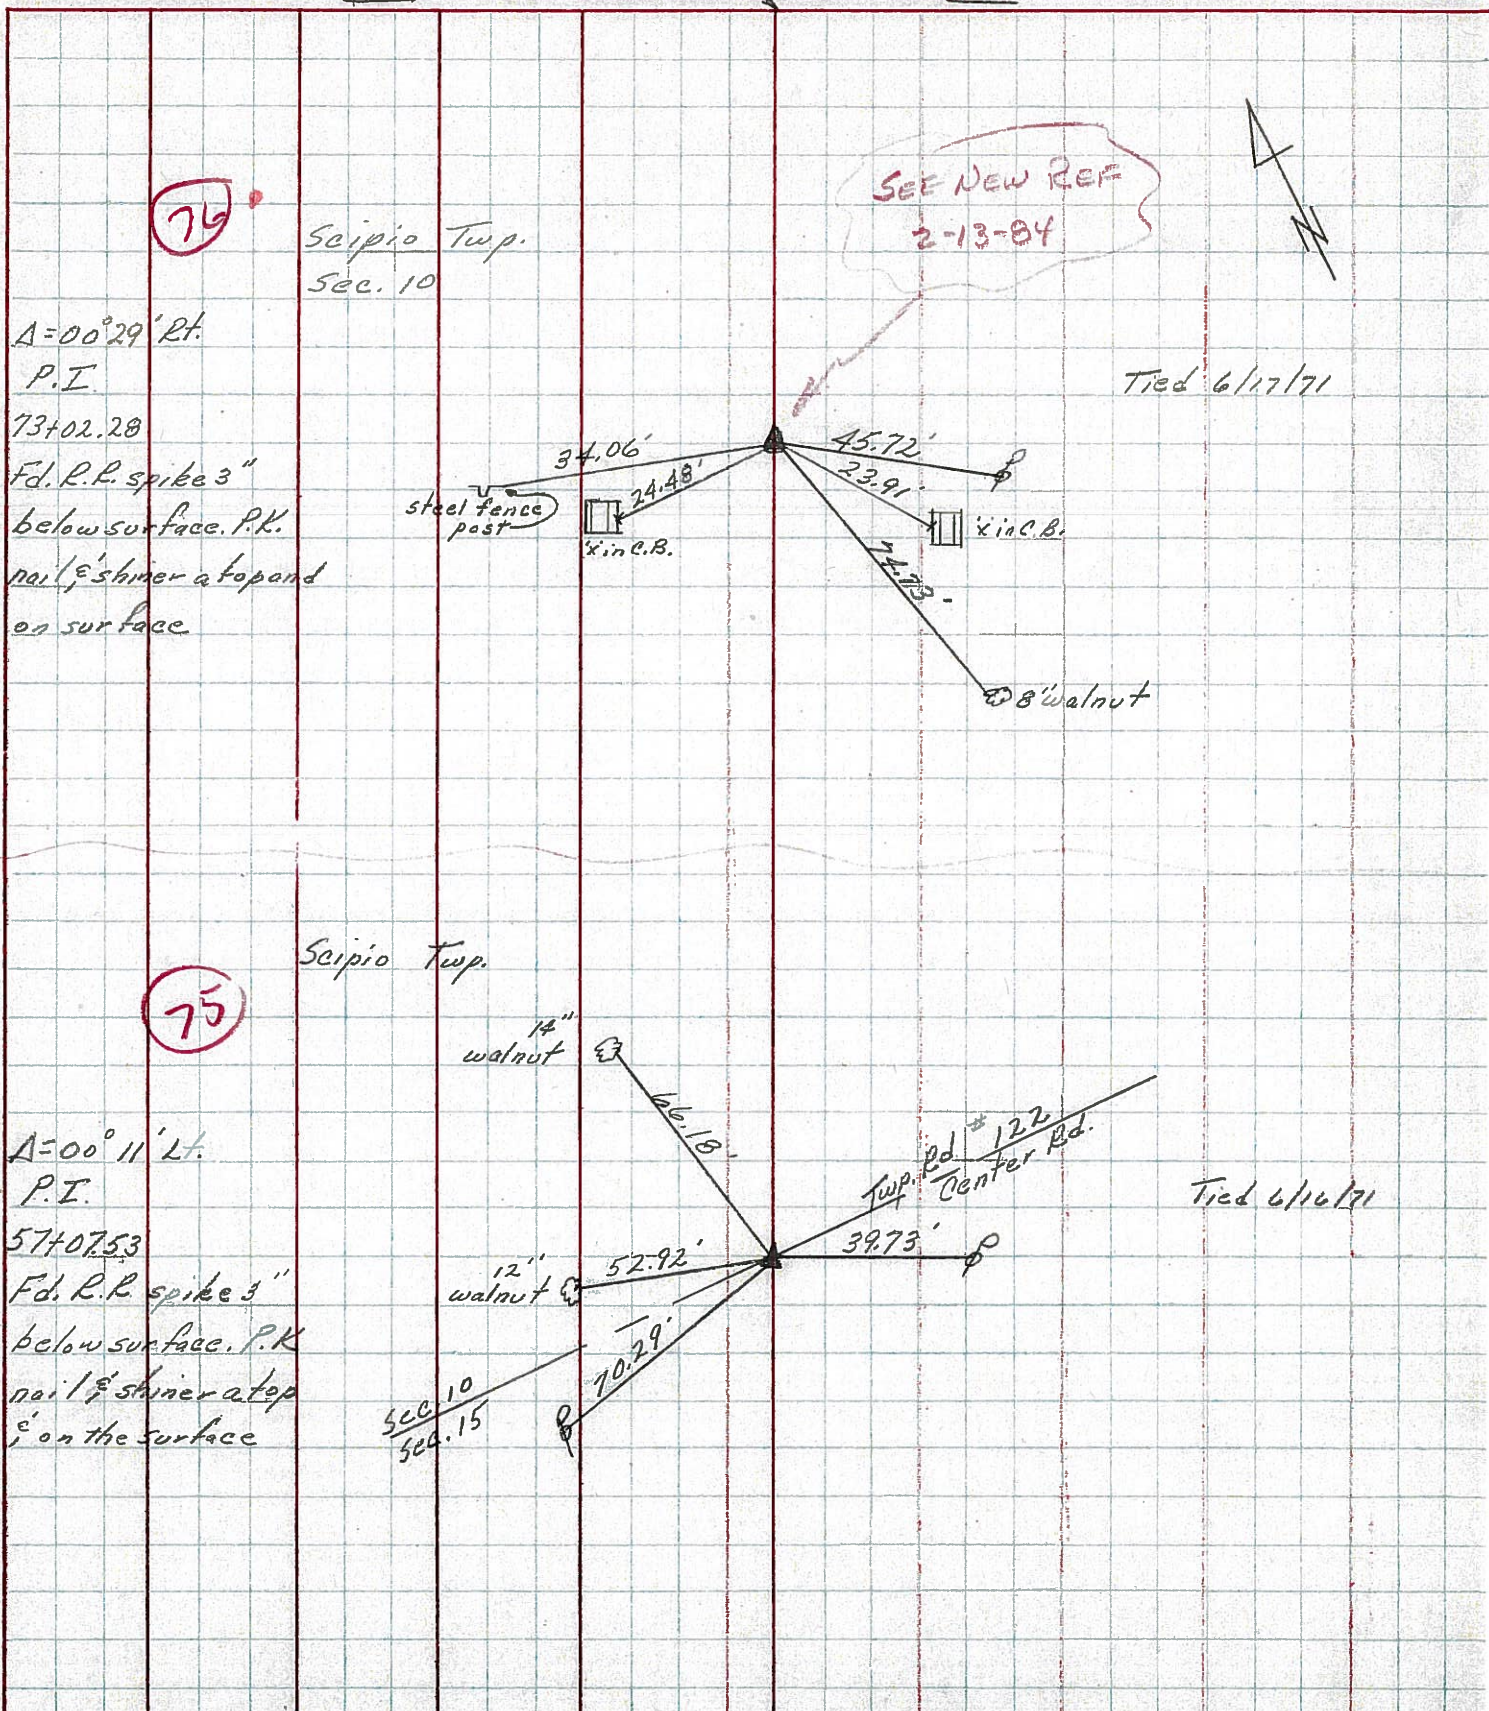 76
Scipio Twp.
Sec. 10
SEE NEW REF
2-13-84
Δ=00°29' Rt.
P.I.
73+02.28
Fd. R.R. spike 3"
below surface. P.K.
nail & shiner atop and
on surface
Tied 6/17/71
34.06'
24.48'
45.72'
23.91'
74.73'
steel fence
post
'x' in C.B.
'x' in C.B.
8" walnut
N
75
Scipio Twp.
Δ=00°11' Lt.
P.I.
57+07.53
Fd. R.R. spike 3"
below surface. P.K
nail & shiner atop
& on the surface
14"
walnut
66.18'
Twp. Rd. #122
Center Rd.
Tied 6/16/71
12"
walnut
52.92'
39.73'
70.29'
Sec. 10
Sec. 15